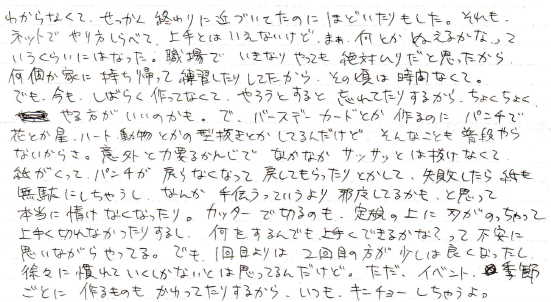 わからなくて、せっかく終わりに近づいてたのにほどいたりもした。それも、
ネットでやり方しらべて、上手とはいえないけど、まぁ、何とかぬえるかなって
いうくらいにはなった。職場でいきなりやっても絶対ムリだと思ったから、
何個か家に持ち帰って練習したりしてたから、その頃は時間なくて。
でも、今も、しばらく作ってなくて、やろうとすると忘れてたりするから、ちょくちょく
やる方がいいのかも。で、バースデーカードとか作るのにパンチで
花とか星、ハート、動物とかの型抜きとかしてるんだけど、そんなことも普段やら
ないからさ。意外と力要るかんじでなかなかサッサッとは抜けなくて、
紙がくって、パンチが戻らなくなって戻してもらったりとかして、失敗したら紙も
無駄にしちゃうし、なんか手伝うっていうより邪魔してるかも、と思って
本当に情けなくなったり。カッターで切るのも、定規の上に刃がのっちゃって
上手く切れなかったりするし、何をするんでも上手くできるかな?って不安に
思いながらやってる。でも、1回目よりは2回目の方が少しは良くなったし、
徐々に慣れていくしかないとは思ってるんだけど。ただ、イベント、季節
ごとに作るものもかわってたりするから、いつも、キンチョーしちゃうよ。